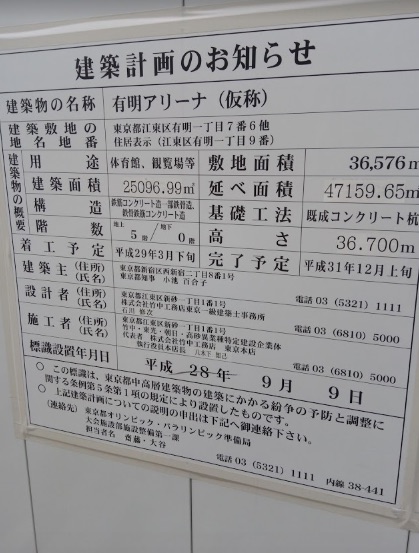 建築計画のお知らせ
建築物の名称 有明アリーナ（仮称）
建築敷地の地名地番 東京都江東区有明一丁目7番6他
住居表示（江東区有明一丁目9番）
建築物の概要
用途 体育館、観覧場等 敷地面積 36,576m
建築面積 25096.99㎡ 延べ面積 47159.65m
構造 鉄筋コンクリート造一部鉄骨造、
鉄骨鉄筋コンクリート造 基礎工法 既成コンクリート杭
階数 地上 5階/地下 0階 高さ 36.700m
着工予定 平成29年3月下旬 完了予定 平成31年12月上旬
建築主（住所） 東京都新宿区西新宿二丁目8番1号
（氏名） 東京都知事 小池 百合子 電話 03 (5321) 1111
設計者（住所） 東京都江東区新砂一丁目1番1号
（氏名） 株式会社竹中工務店東京一級建築士事務所
石川 修次 電話 03 (6810) 5000
施工者（住所） 東京都江東区新砂一丁目1番1号
（氏名） 竹中・東光・朝日・高砂異業種特定建設企業体
代表者 株式会社竹中工務店 東京本店
執行役員本店長 電話 03 (6810) 5000
標識設置年月日 平成 28年 9月 9日
○ この標識は、東京都中高層建築物の建築にかかる紛争の予防と調整に
関する条例第5条第1項の規定により設置したものです。
○ 上記建築計画についての説明の申出は下記へ御連絡下さい。
（連絡先） 東京都オリンピック・パラリンピック準備局
大会施設部施設整備第一課
担当者名 齋藤・大谷 電話 03 (5321) 1111 内線 38-441